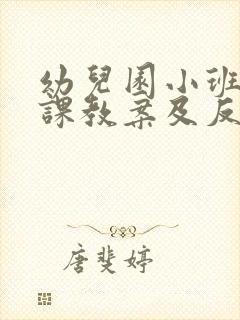 幼兒園小班
課教案及反
唐斐婷